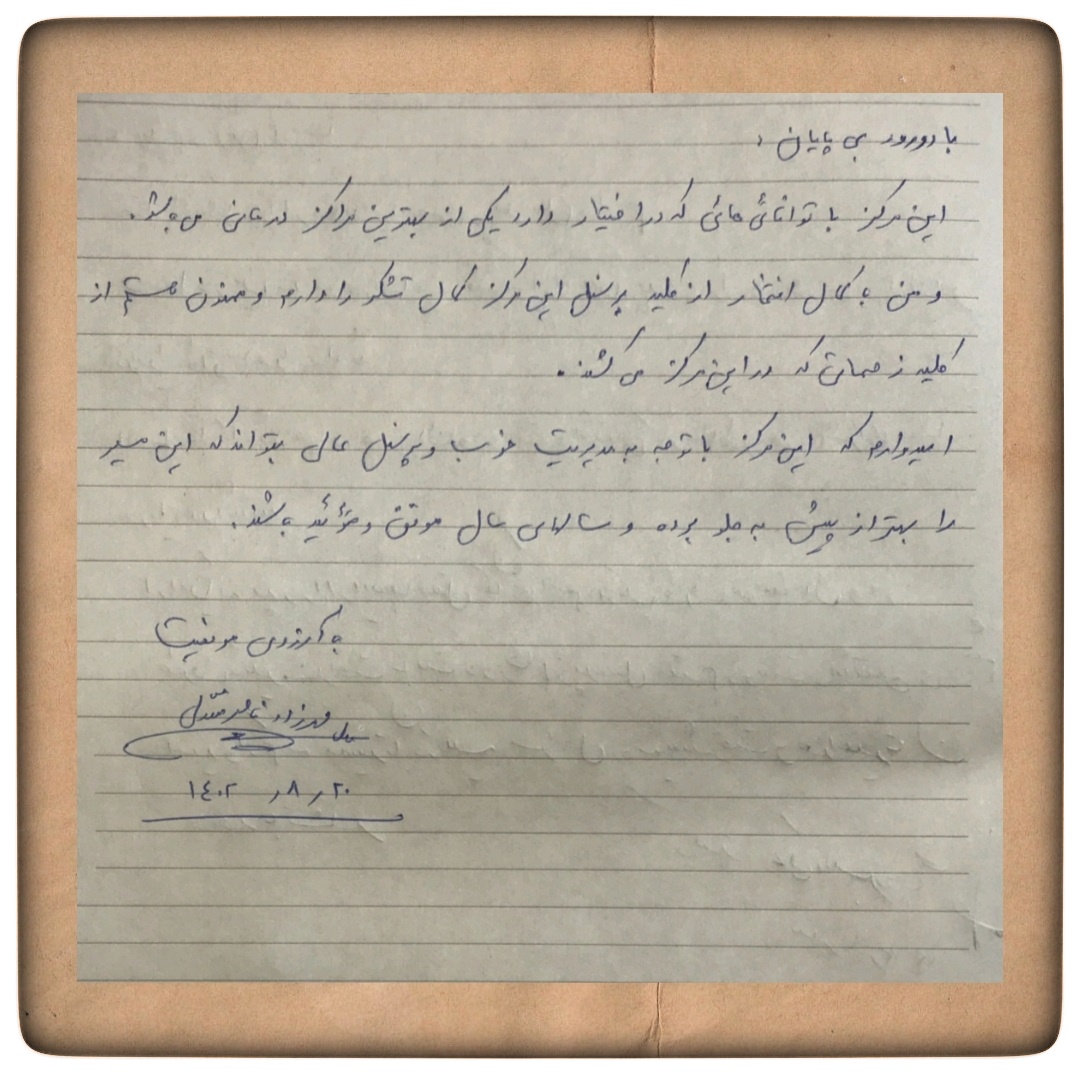 با درود بی پایان،
این مرکز با توانائی هائی که در اختیار دارد یکی از بهترین مراکز درمانی می باشد.
و من با کمال افتخار از کلیه پرسنل این مرکز کمال تشکر را دارم و ممنون هستم از
کلیه زحماتی که در این مرکز می کشند.
امیدوارم که این مرکز با توجه به مدیریت خوب و پرسنل عالی بتواند که این مسیر
را بهتر از پیش به جلو برده و سالهای سال موفق و مؤئید باشند.
با آرزوی موفقیت
فرزاد
۲۰ ر ۸ ر ۱٤۰۲